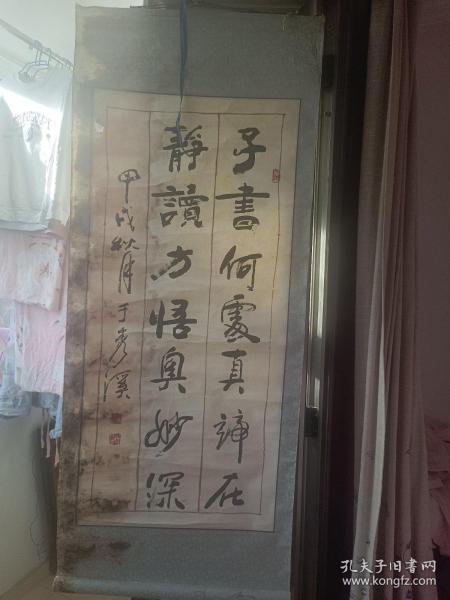 子書何處真諦在
靜讀方悟奧妙深
甲戌秋月于秀溪
孔夫子旧书网
www.kongfz.com